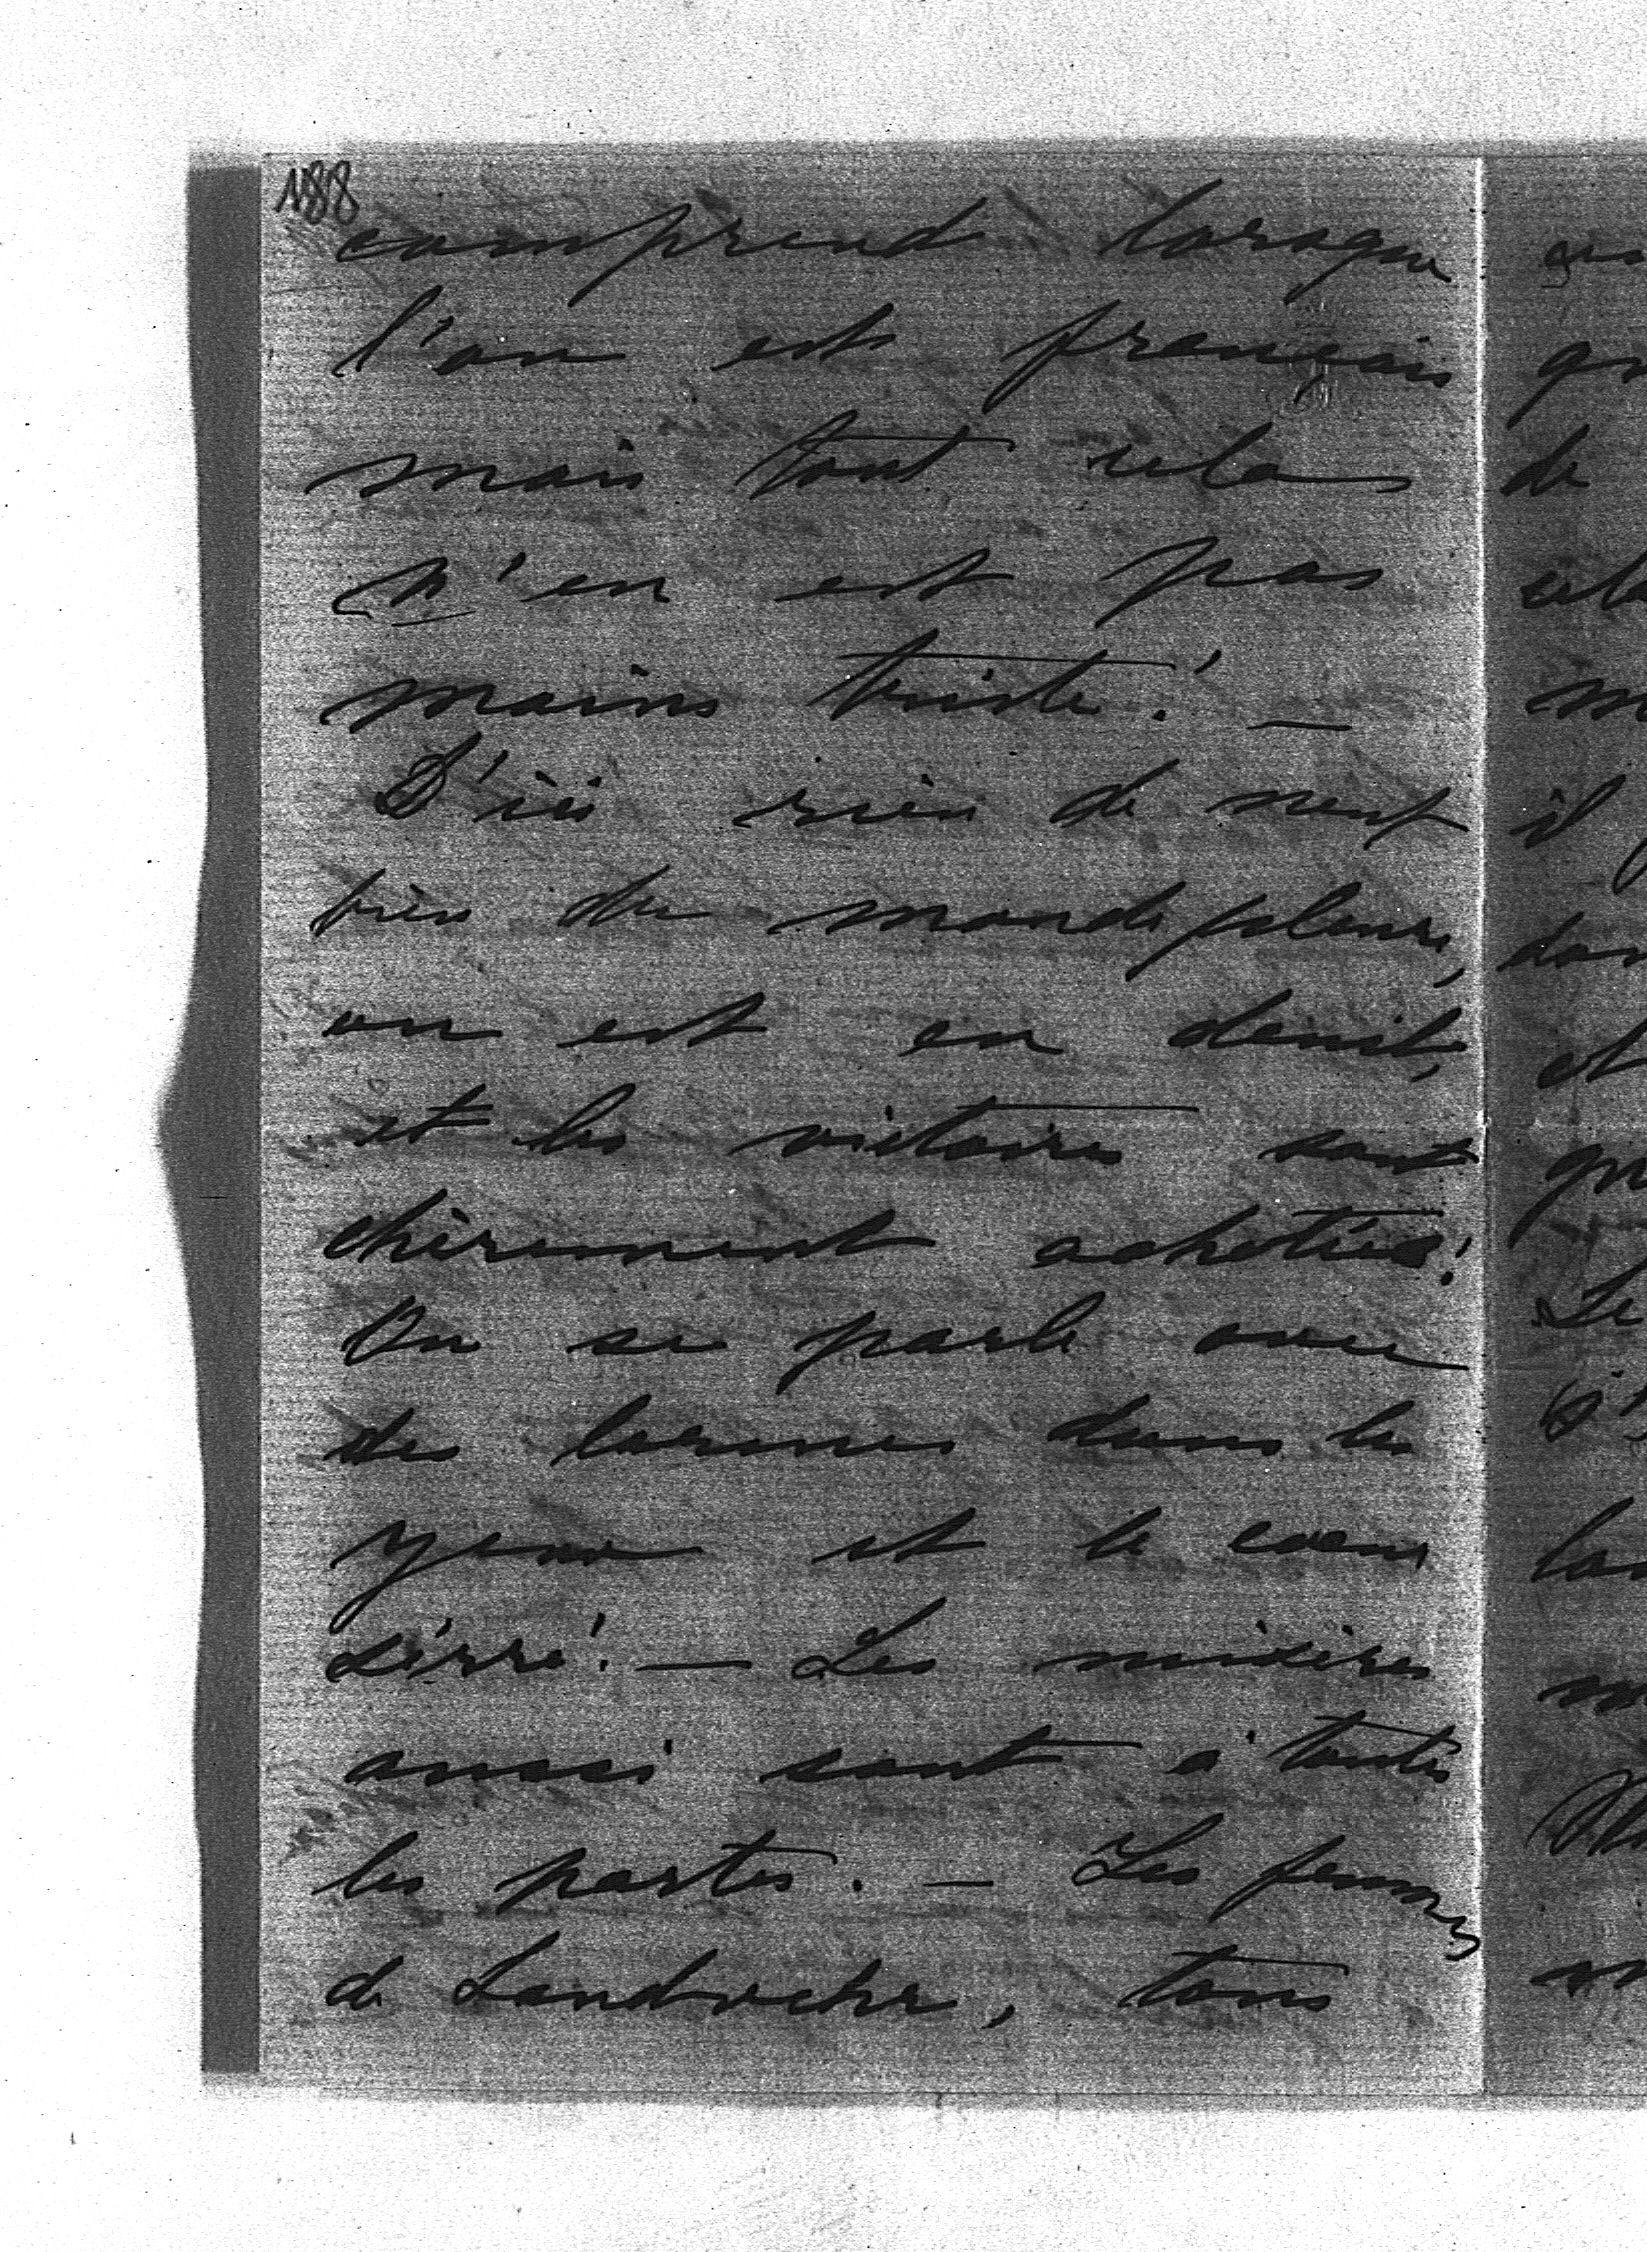 188
comprend lorsque
l'on est français
mais tout cela
n'en est pas
moins triste! —
D'ici rien de neuf
bien du monde pleure,
on est en deuil,
et les victoires sont
chèrement achetées!
On se parle avec
des larmes dans les
yeux et le coeur
sérré! — Les misères
aussi sont à toutes
les portes. — Les femmes
de Landwehr, tous